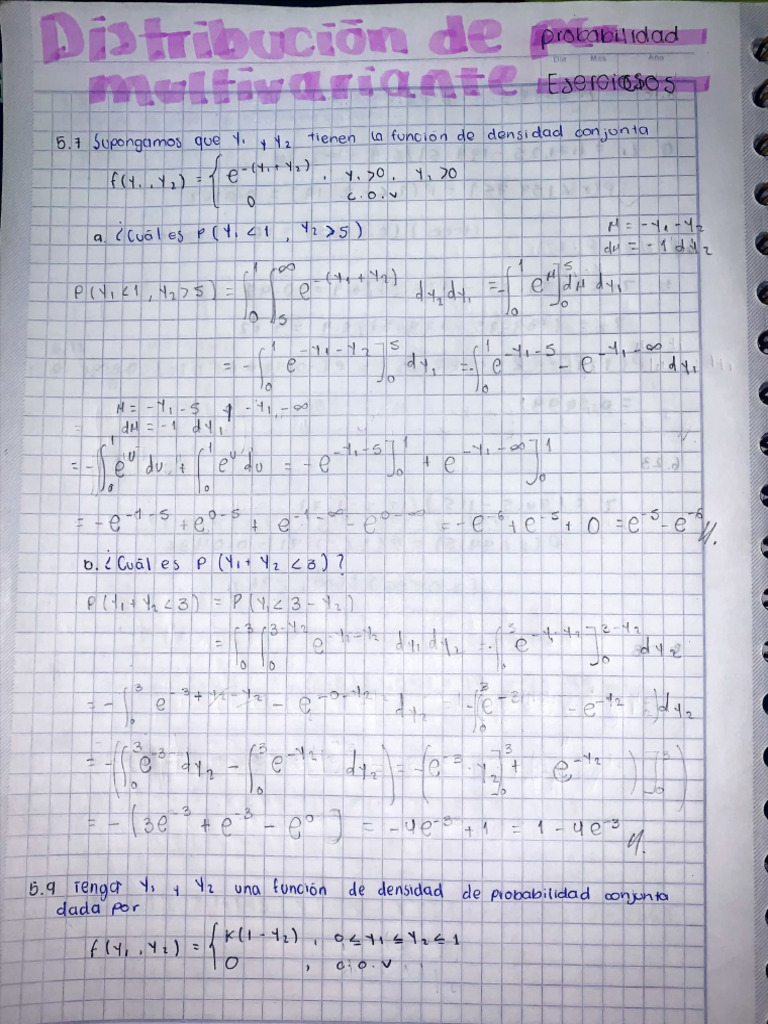 Distribución de
probabilidad
multivariante.
Día Mes Año
Esercicsos
5.7 Supongamos que Y₁ y Y₂ tienen la función de densidad conjunta
f(Y₁, Y₂) = { e^-(Y₁+Y₂), Y₁>0, Y₁>0
0 c.o.v
a. ¿Cuál es P(Y₁<1, Y₂>5)
M = -Y₁-Y₂
dM = -1 dY₂
P(Y₁<1, Y₂>5) = ∫₀¹ ∫₅^∞ e^-(Y₁+Y₂) dY₂dY₁ = -∫₀¹ e^M]₀⁵ dM dY₁
= -∫₀¹ e^(-Y₁-Y₂)]₀⁵ dY₁ = -∫₀¹ e^(-Y₁-5) - e^(-Y₁-∞) dY₁
M = -Y₁-5 y -Y₁-∞
= dM = -1 dY₁
= -∫₀¹ e^u du + ∫₀¹ e^u du = -e^(-Y₁-5)]₀¹ + e^(-Y₁-∞)]₀¹
= -e^(-1-5) + e^(0-5) + e^(-1-∞) - e^(0-∞) = -e^-6 + e^-5 + 0 = e^-5 - e^-6 //.
b. ¿Cuál es P(Y₁+Y₂<3)?
P(Y₁+Y₂<3) = P(Y₁<3-Y₂)
= ∫₀³ ∫₀^(3-Y₂) e^(-Y₁-Y₂) dY₁dY₂ = -∫₀³ e^(-Y₁-Y₂)]₀^(3-Y₂) dY₂
= -∫₀³ e^(-3+Y₂-Y₂) - e^(-0-Y₂) dY₂ = -∫₀³ (e^-3 - e^-Y₂) dY₂
= -(∫₀³ e^-3 dY₂ - ∫₀³ e^-Y₂ dY₂) = -(e^-3 · Y₂]₀³ + e^-Y₂)]₀³)
= -(3e^-3 + e^-3 - e⁰] = -4e^-3 + 1 = 1 - 4e^-3 //.
5.9 Tenga Y₁ y Y₂ una función de densidad de probabilidad conjunta
dada por
f(Y₁, Y₂) = { K(1-Y₂), 0≤Y₁≤Y₂≤1
0, c.o.v